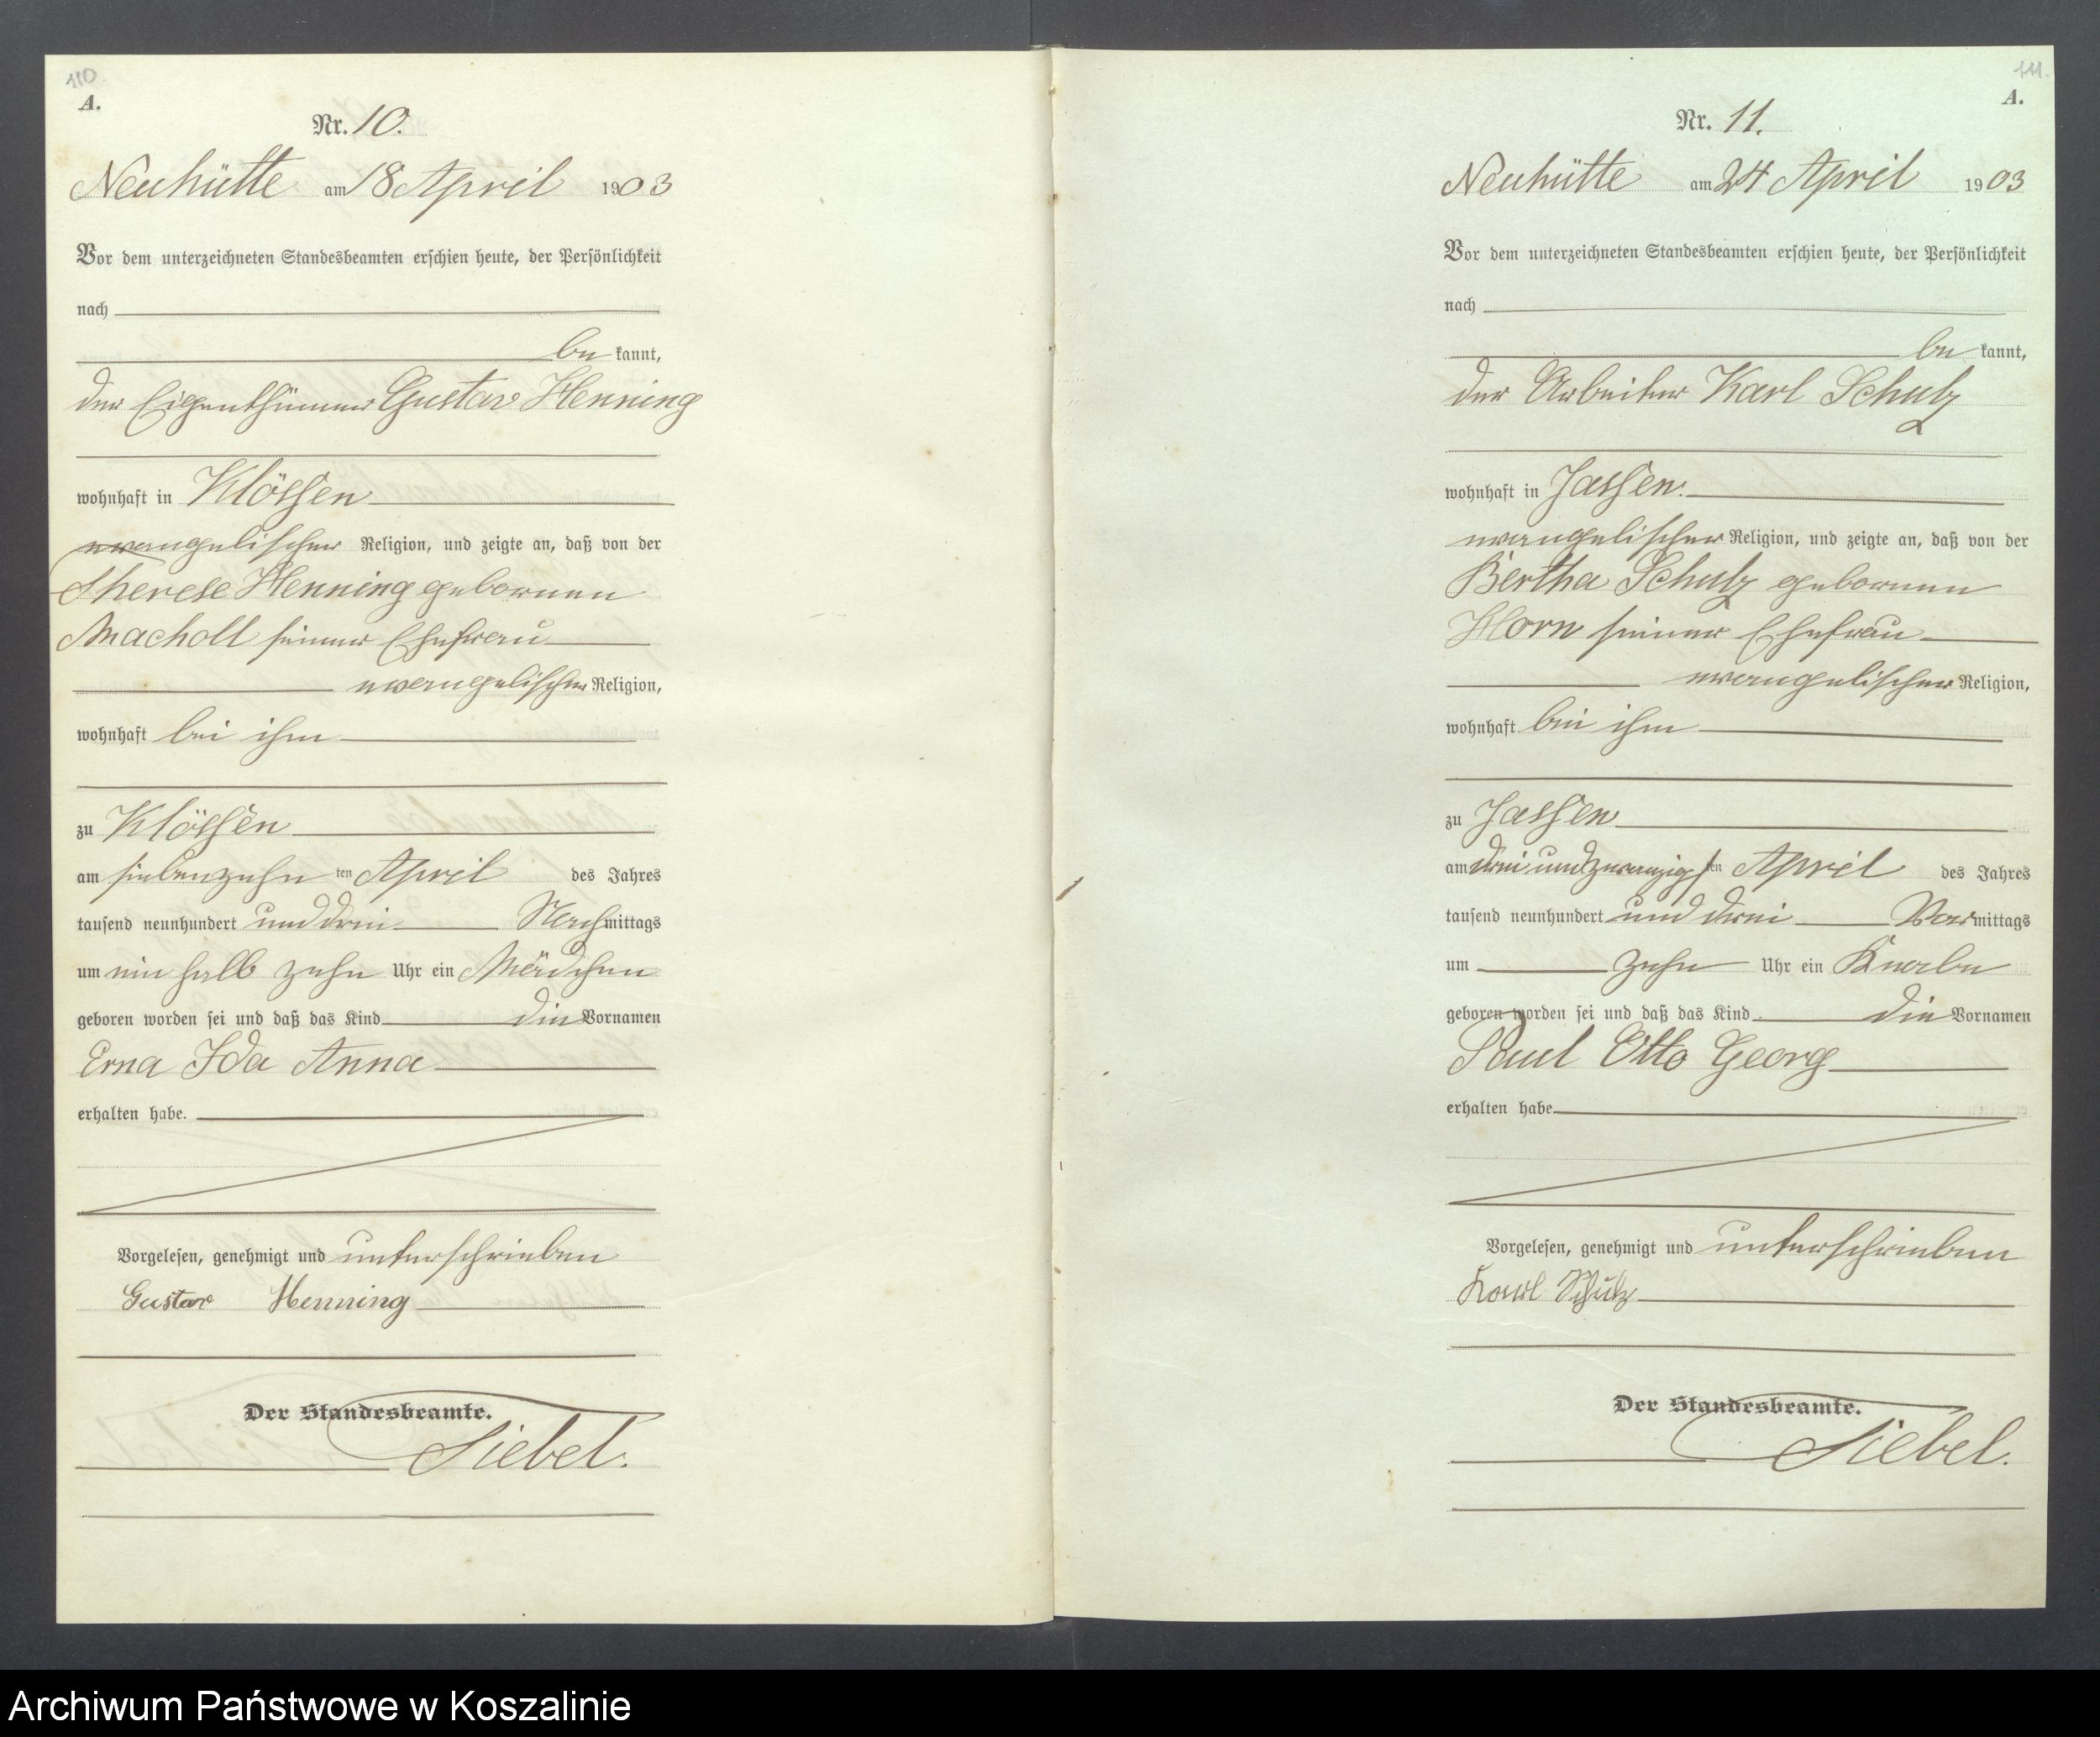 110
A.
Nr. 10.
Neuhütte am 18 April 1903
Vor dem unterzeichneten Standesbeamten erschien heute, der Persönlichkeit
nach
be kannt,
der Eigenthümer Gustav Henning
wohnhaft in Klössen
evangelischer Religion, und zeigte an, daß von der
Therese Henning geborenen
Macholl seiner Ehefrau
evangelischer Religion,
wohnhaft bei ihm
zu Klössen
am siebenzehn ten April des Jahres
tausend neunhundert und drei Nachmittags
um ein halb zehn Uhr ein Mädchen
geboren worden sei und daß das Kind die Vornamen
Erna Ida Anna
erhalten habe.
Vorgelesen, genehmigt und unterschrieben
Gustav Henning
Der Standesbeamte.
Siebel.
111.
A.
Nr. 11.
Neuhütte am 24 April 1903
Vor dem unterzeichneten Standesbeamten erschien heute, der Persönlichkeit
nach
be kannt,
der Arbeiter Karl Schulz
wohnhaft in Jassen.
evangelischer Religion, und zeigte an, daß von der
Bertha Schulz geborenen
Horn seiner Ehefrau
evangelischer Religion,
wohnhaft bei ihm
zu Jassen
am drei und zwanzigsten April des Jahres
tausend neunhundert und drei Vormittags
um zehn Uhr ein Knabe
geboren worden sei und daß das Kind die Vornamen
Paul Otto Georg
erhalten habe
Vorgelesen, genehmigt und unterschrieben
Karl Schulz
Der Standesbeamte.
Siebel.
Archiwum Państwowe w Koszalinie